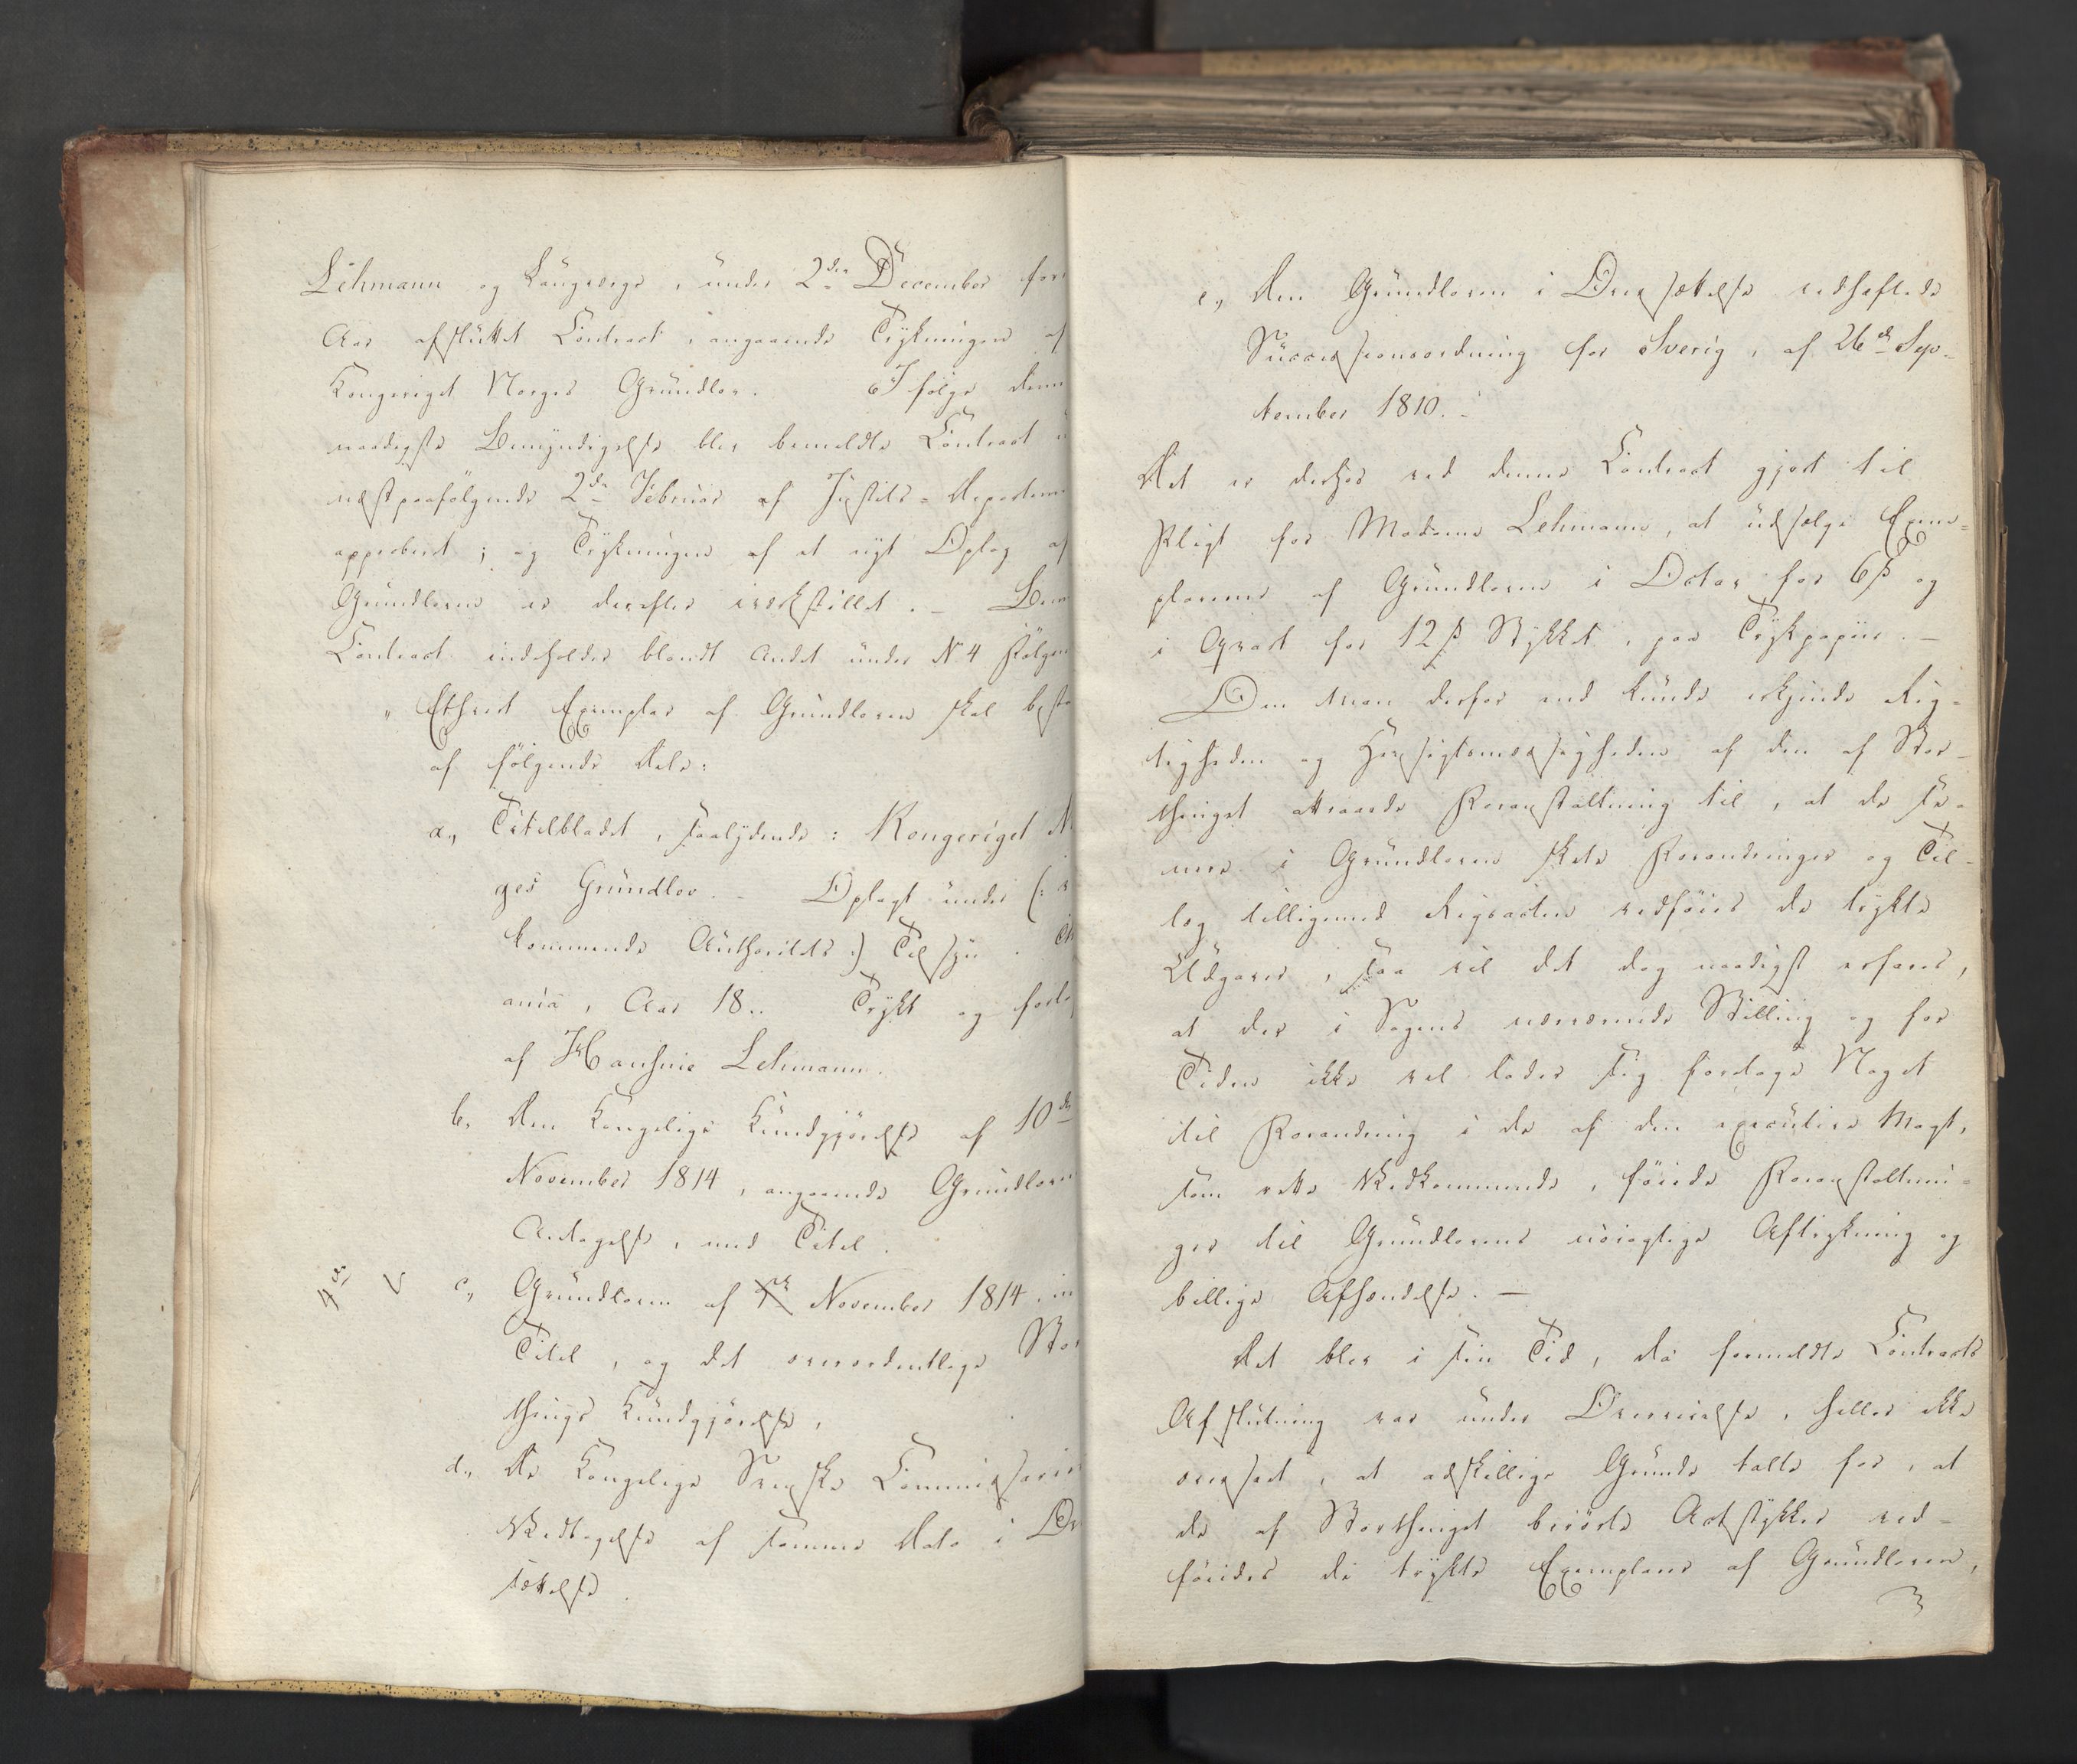 Lehmann og Laugværge, under 2den December for
Aar afsluttet Contract, angaaende Trykningen af
Kongeriget Norges Grundlov. Ifølge denn
naadigste Bemyndigelse blev bemeldte Contract
næstpaafølgende 2den Februar af Justits-Departem
approberet; og Trykningen af et nyt Oplag af
Grundloven er derefter iværkstillet. – Bem
Contract indeholder blandt Andet under N 4 Følgen
„Ethvert Exemplar af Grundloven skal bestaa
af følgende Dele:
a., Titelbladet, saalydende: Kongeriget N
ges Grundlov. – Oplagt under (: v
kommende Authoritets :) Tilsyn. Ch
ania, Aar 18.. Trykt og forla
af Hansine Lehmann.
b. Den Kongelige Kundgjørelse af 10de
November 1814, angaaende Grundloven
Antagelse, med Titel.
4de
c., Grundloven af November 1814, m
Titel, og det overordentlige Stor
things Kundgjørelse,
d., De Kongelige Svenske Commissarier
Vedtagelse af samme Dato i Ov
sættelse.
e., Den Grundloven i Oversættelse vedhæftede
Successionsordning for Sverig, af 26de Sep-
tember 1810. –
Det er derhos ved denne Contract gjort til
Pligt for Madame Lehmann, at udsælge Exem-
plarene af Grundloven i Octav for 6 ß og
i Qvart for 12 ß Stykket, paa Trykpapiir. –
Om man derfor end kunde erkjende Rig-
tigheden og Hensigtsmæssigheden af den af Stor-
thinget attraaede Foranstaltning til, at de se-
nere i Grundloven skete Forandringer og Til-
læg tilligemed Rigsacten vedføies de trykte
Udgaver, saa vil det dog naadigst erfares,
at der i Sagens nærværende Stilling og for
Tiden ikke vel lader sig foretage Noget
til Forandring i de af den executive Magt,
som rette Vedkommende, føiede Foranstaltnin-
ger til Grundlovens nøiagtige Aftrykning og
billige Afhændelse. –
Det blev i sin Tid, da formeldte Contracts
Afslutning var under Overveielse, heller ikke
overseet, at adskillige Grunde talte for, at
de af Storthinget berørte Actstykker ved-
føiedes de trykte Exemplarer af Grundloven,
3